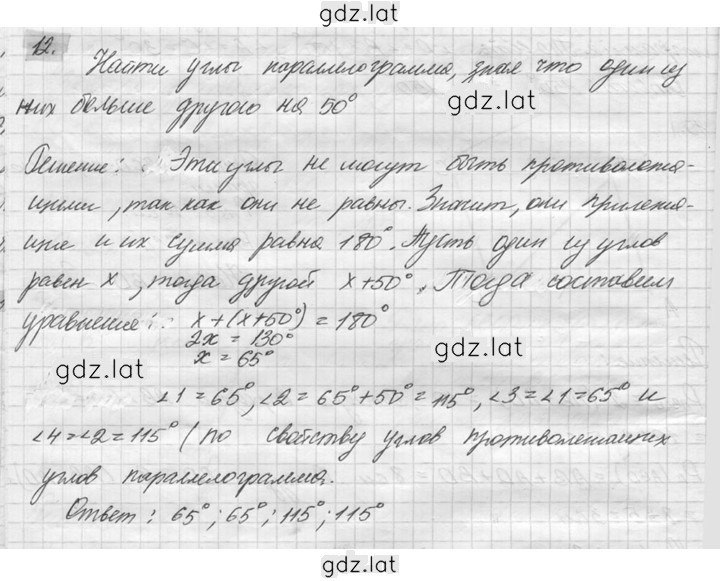 gdz.lat
12.
Найти углы параллелограмма, зная что один из
них больше другого на 50°
gdz.lat
gdz.lat
Решение: Эти углы не могут быть противолежа-
щими, так как они не равны. Значит, они прилежа-
щие и их сумма равна 180°. Пусть один из углов
равен x, тогда другой x+50°. Тогда составим
уравнение: x+(x+50°)=180°
2x = 130°
x = 65°
gdz.lat
gdz.lat
∠1=65°, ∠2=65°+50°=115°, ∠3=∠1=65° и
∠4=∠2=115° (по свойству углов противолежащих
углов параллелограмма.
Ответ: 65°; 65°; 115°; 115°
gdz.lat